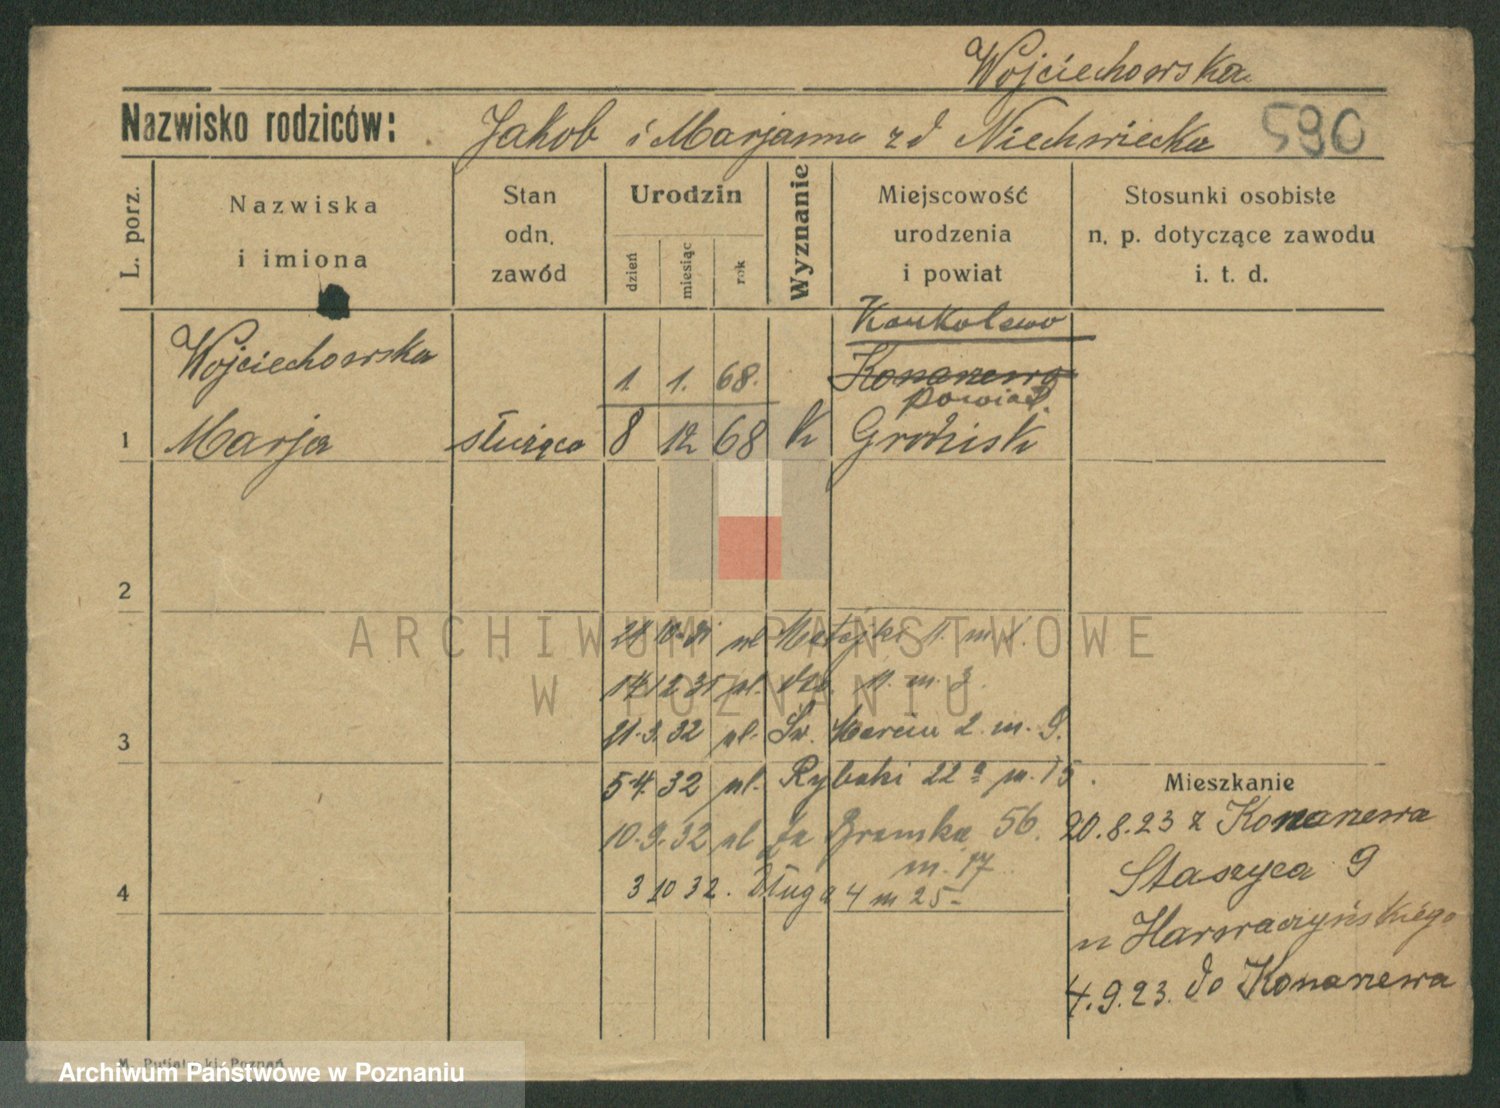 Wojciechowska
Nazwisko rodziców: Jakob i Marjanna zd Niechwiecka 590
L. porz.
Nazwiska i imiona
Stan odn. zawód
Urodzin
dzień
miesiąc
rok
Wyznanie
Miejscowość urodzenia i powiat
Stosunki osobiste n. p. dotyczące zawodu i. t. d.
Kankolewo
Wojciechowska 1. 1. 68. Konarzewo
powiat
1 Marja służąca 8 12 68 K Grodzisk
2
28 10 31 ul Matejki 11. m 1.
14 12 31 ul. 11. m. 3.
3 21. 3. 32 ul. Św. Marcin 2. m. 9.
5 4. 32 ul. Rybaki 22a m. 15.
Mieszkanie
10. 9. 32 ul Za Bramką 56.
m. 17
20.8.23 z Konarzewa
Staszyca 9
4 3 10 32. Długa 4 m 25-
u Harwaczyńskiego
4.9.23. do Konarzewa
ARCHIWUM PAŃSTWOWE
W POZNANIU
Archiwum Państwowe w Poznaniu